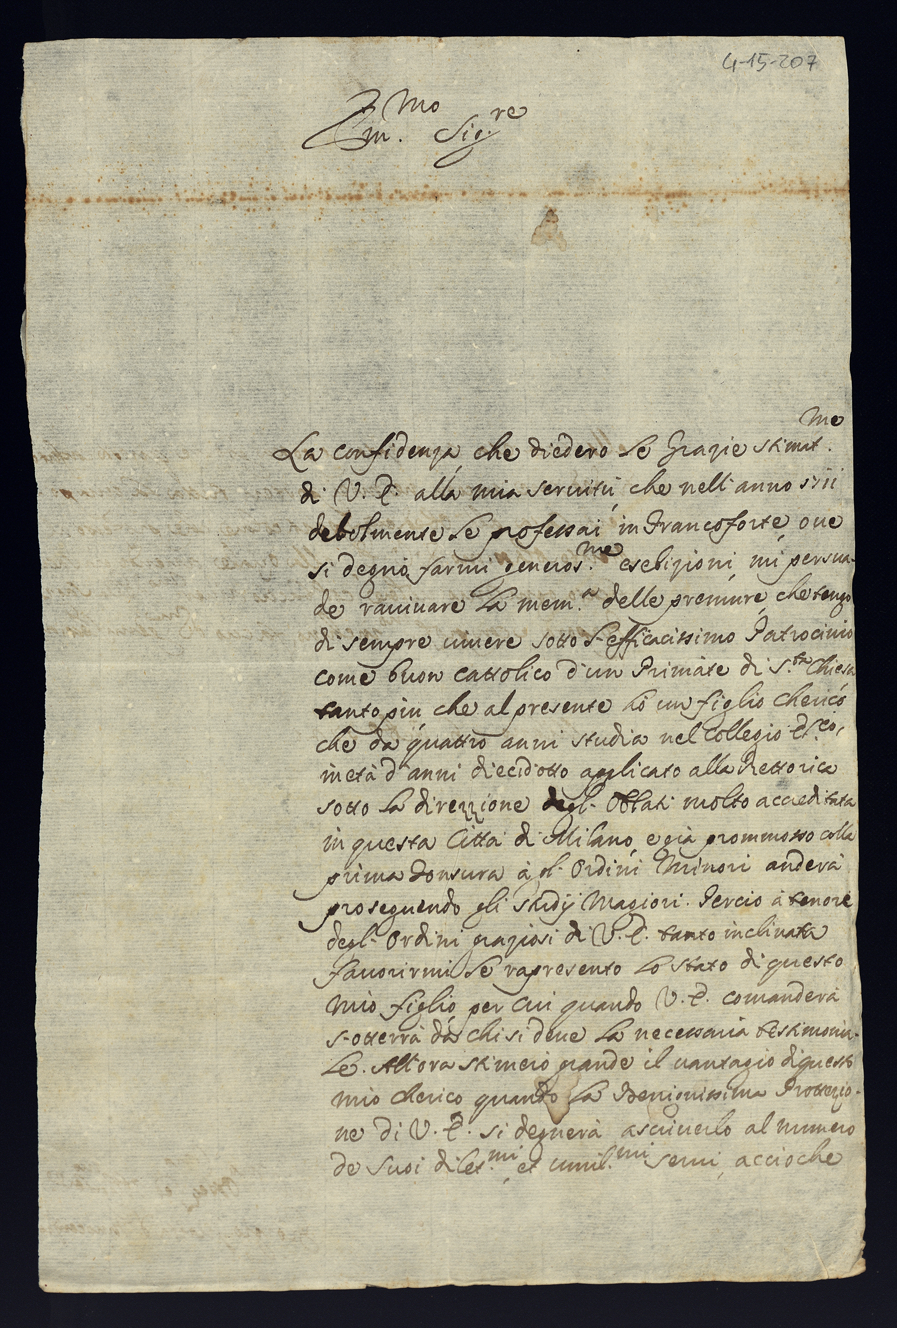 4-15-207
Em.mo Sig.re
La confidenza che diedero le Grazie stimat.me
di V. E. alla mia seruitù, che nell'anno 1711
debolmente le professai in Francoforte, oue
si degnò farmi generos.me esebizioni, mi persua-
de rauiuare la mem.a delle premure, che tengo
di sempre uiuere sotto l'efficacissimo Patrocinio
come buon Cattolico d'un Primate di S.ta Chiesa
tanto più che al presente hò un figlio Cherico
che da quattro anni studia nel Collegio
in età d'anni diecidotto applicato alla Rettorica
sotto la direzzione degl. Oblati molto accreditata
in questa Città di Milano, e già prommosso colla
prima Tonsura à gl. Ordini Minori anderà
proseguendo gli studij Magiori. Perciò à tenore
degl. Ordini graziosi di V. E. tanto inclinata
fauorirmi le rapresento lo stato di questo
mio figlio, per cui quando V. E. comanderà
s'otterrà da chi si deue la necessaria testimonia-
le. Allora stimerò grande il uantagio di questo
mio cherico quando la Benignissima Protezio-
ne di V. E. si degnerà ascriuerlo al numero
de Suoi dilet.mi, et umil.mi serui, accioche